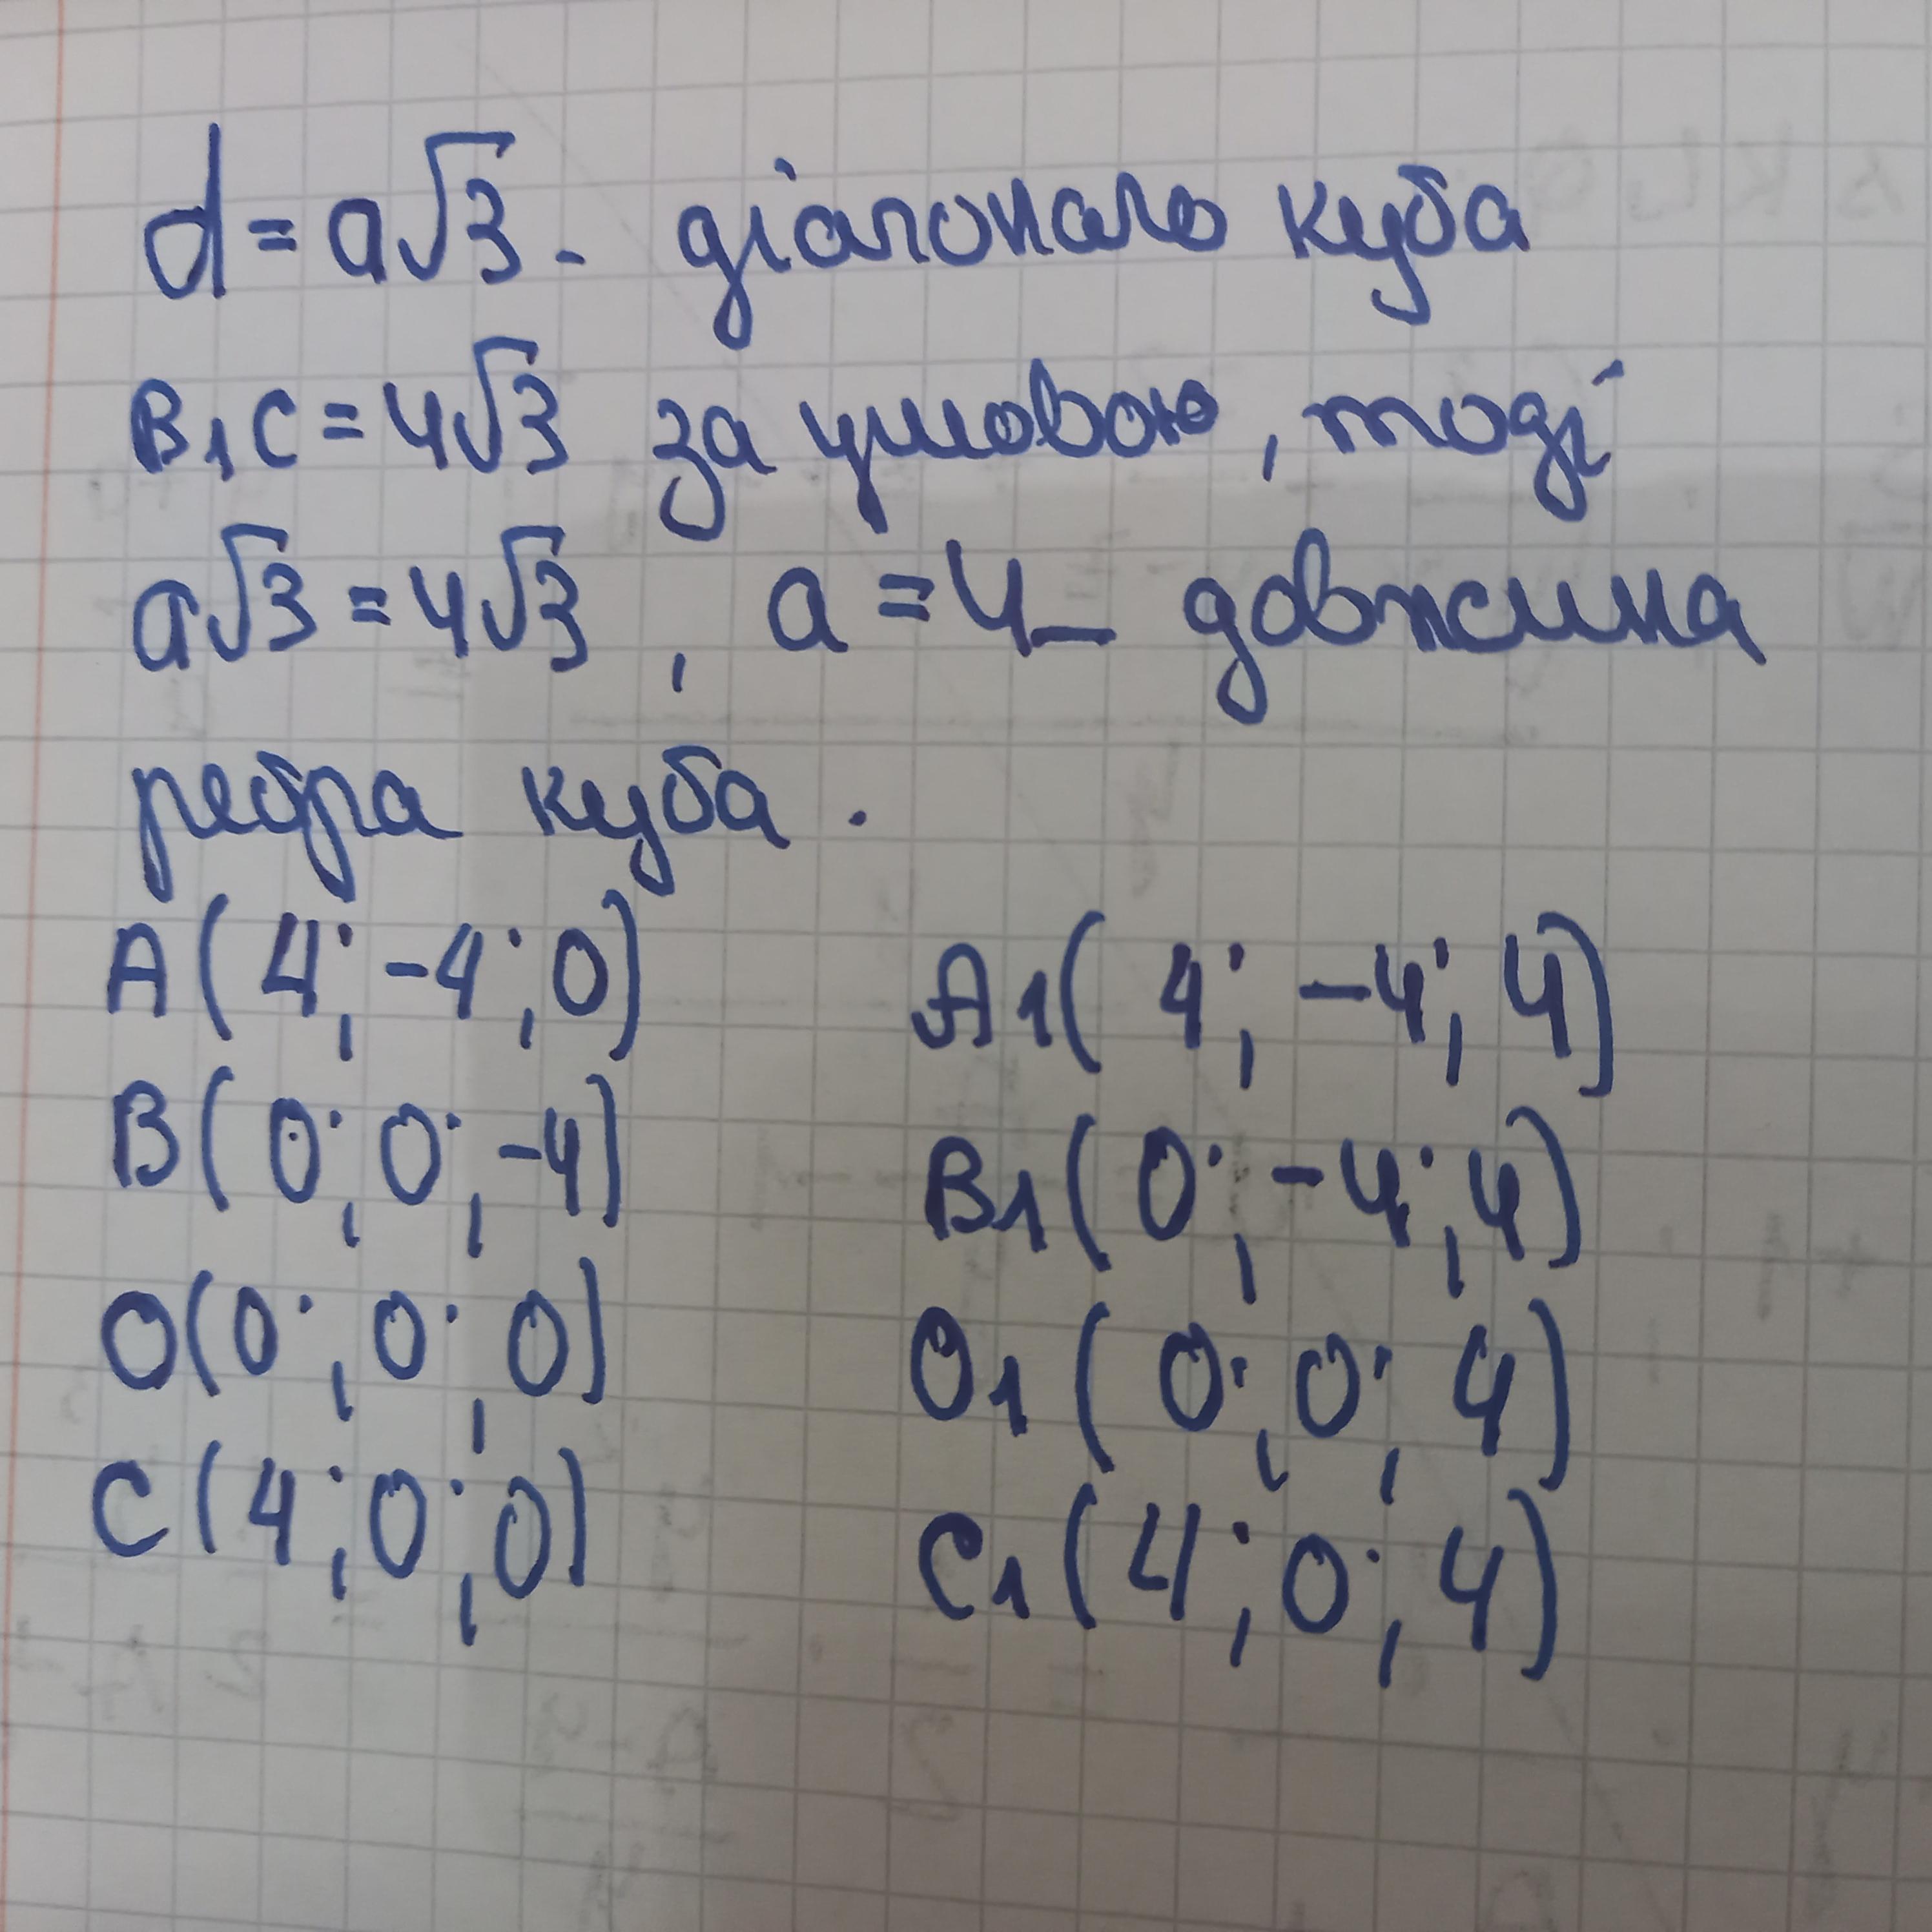 d = a√3 - діагональ куба
B₁C = 4√3 за умовою, тоді
a√3 = 4√3, a = 4 – довжина
ребра куба.
A(4; -4; 0) A₁(4; -4; 4)
B(0; 0; -4) B₁(0; -4; 4)
O(0; 0; 0) O₁(0; 0; 4)
C(4; 0; 0) C₁(4; 0; 4)